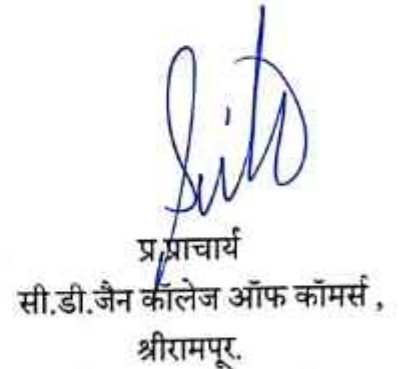 प्र.प्राचार्य
सी.डी.जैन कॉलेज ऑफ कॉमर्स ,
श्रीरामपूर.